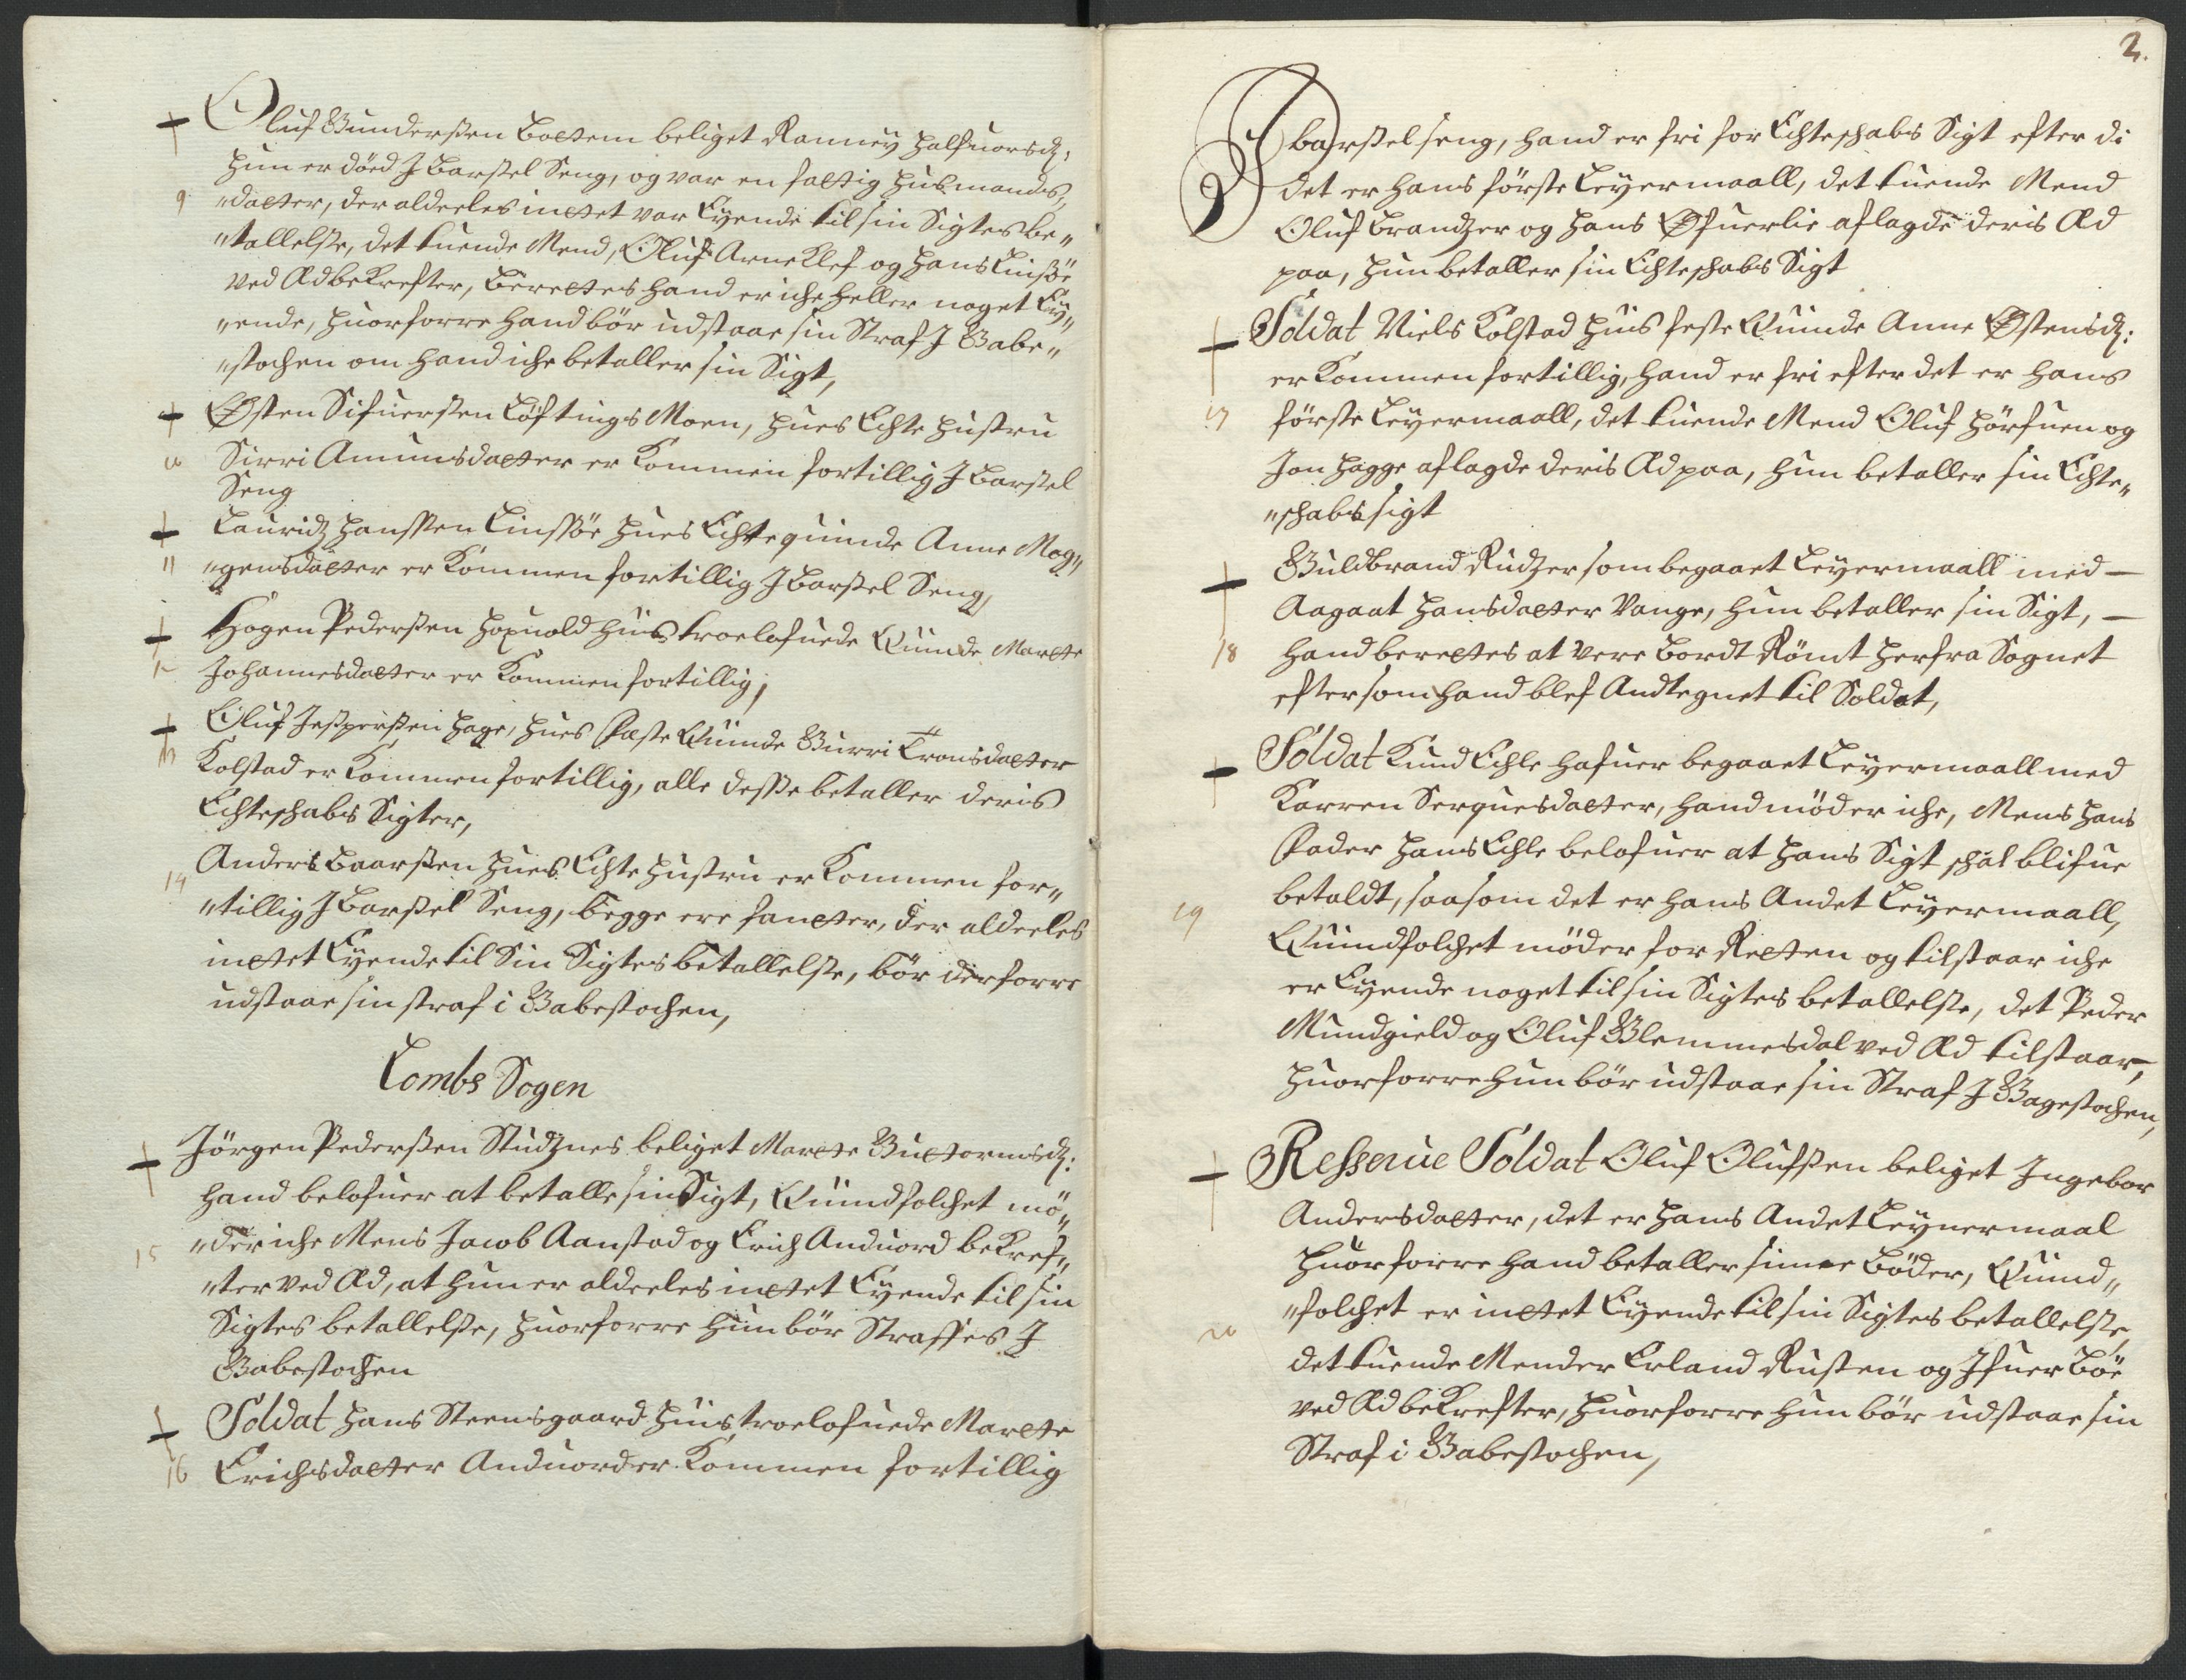 Oluf Gunderßen Botem beliget Ranney Halfuorsdr:
hun er död J Barsel Seng, og var en fattig huusmands
9 "daater, der aldeeles intet var Eyende til sin Sigtes be„
"tallelse, det tuende Mend, Oluf Arneklef og Hans Linßöe
ved Æd bekrefter, Berettes hand er iche heller noget Ey„
"ende, huorforre hand bör udstaae sin Straf J Gabe„
"stochen om hand iche betaller sin Sigt,
Østen Sifuersen Löftings Moen, hues Echte hustru
10 Sirri Amunsdaatter er Kommen fortillig J Barsel
Seng
Lauridz Hansßen Linsöe hues Echte quinde Anne Mog„
11 "gensdaatter er Kommen fortillig J Barsel Seng,
Hogen Pedersen Hoxuold huis troelofuede Quinde Marete
12 Johannesdaatter er Kommen fortillig,
Oluf Jesperßen Hage, hues Fæste Quinde Gurri Tronsdaatter
13 Kolstad er Kommen fortillig, alle desse betaller deris
Echteschabs Sigter,
Anders Baarsen hues Echte Hustru er Kommen for„
14 "tillig J Barsel Seng, begge ere fanter, der aldeeles
intet Eyende til Sin Sigtes betallelse, bör derforre
udstaae sin straf i Gabestochen,
Lombs Sogen
Jörgen Pederßen Studznes beliget Marete Guttormsdr:
hand belofuer at betalle sin Sigt, Quindfolchet mö„
15 "der iche Mens Jacob Aanstad og Erich Anduord bekref„
"ter ved Æd, at hun er aldeeles intet Eyende til sin
Sigtes betallelse, huorforre hun bör Straffes J
Gabestochen
Soldat Hans Steensgaard huis troelofuede Marete
16 Erichsdaatter Anduord er Kommen fortillig
2.
J barselseng, hand er fri for Echteschabs Sigt efter di
det er hans förste Leyermaall, det tuende Mend
Oluf Brandzer og Hans Øfuerlie aflagde deris Æd
paa, hun betaller sin Echteschabs Sigt
Soldat Niels Kolstad huis feste Quinde Anne Østensdr:
er Kommen fortillig, hand er fri efter det er hans
17 förste Leyermaall, det tuende Mend Oluf Hörfuen og
Jon Hagge aflagde deris Æd paa, hun betaller sin Echte„
"schabs sigt
Guldbrand Rudzer som begaaet Leyermaall med —
Aagaat Hansdaatter Vange, hun betaller sin Sigt, —
18 hand berettes at vere Bordt Römt herfra Sognet
eftersom hand blef Andtegnet til Soldat,
Soldat Knud Echle hafuer begaaet Leyermaall med
Karren Serquesdaatter, hand möder iche, Mens Hans
Fader Hans Echle belofuer at Hans Sigt schal blifue
19 betaldt, saasom det er hans Andet Leyermaall,
Quindfolchet möder for Retten og tilstaar iche
er Eyende noget til sin Sigtes betallelse, det Peder
Mundgield og Oluf Glemmesdal ved Æd tilstaar,
huorforre hun bör udstaae sin Straf J Gagestochen,
Resserue Soldat Oluf Olufsen beliget Ingebor
Andersdaatter, det er Hans Andet Leynermaal
huorforre hand betaller sinne Böder, Quind„
"folchet er intet Eyende til sin Sigtes betallelse,
20 det tuende Mender Erland Rusten og Ifuer Böe
ved Æd bekrefter, huorforre hun bör udstaae sin
Straf i Gabestochen,